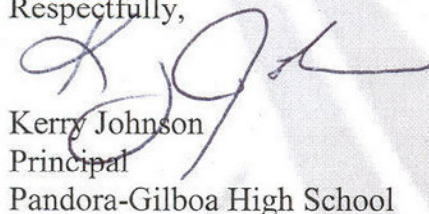 Respectfully,
Kerry Johnson
Principal
Pandora-Gilboa High School